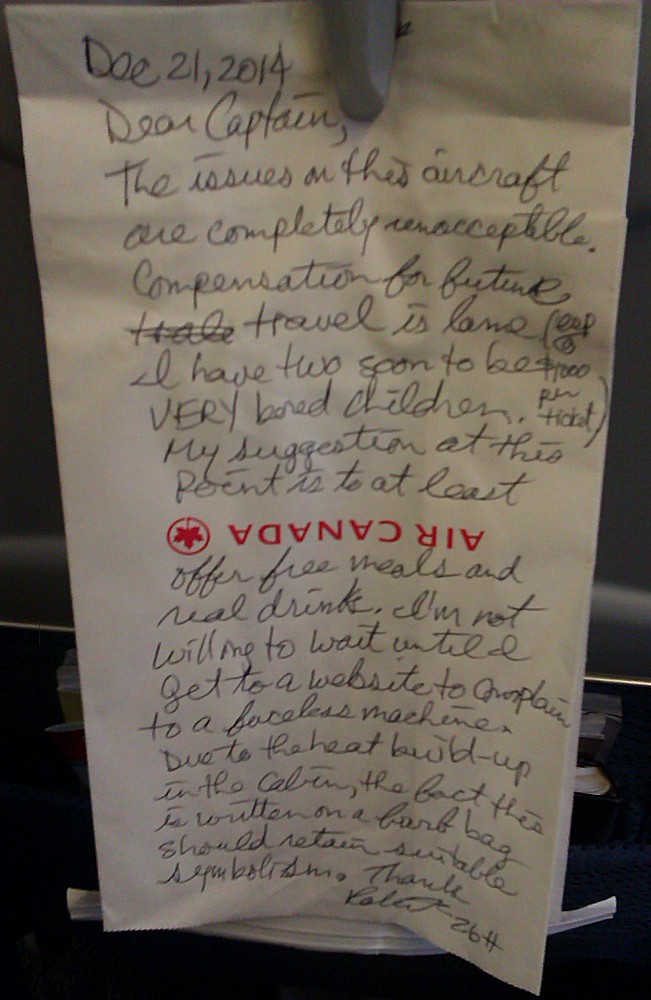 Dec 21, 2014
Dear Captain,
The issues on this aircraft
are completely unacceptable.
Compensation for future
travel is lame (esp @ $1000 per ticket)
I have two soon to be
VERY bored children.
My suggestion at this
point is to at least
AIR CANADA
offer free meals and
real drinks. I'm not
willing to wait until I
get to a website to complain
to a faceless machine.
Due to the heat build-up
in the cabin, the fact this
is written on a barf bag
should retain suitable
symbolism. Thank
Robert 26H